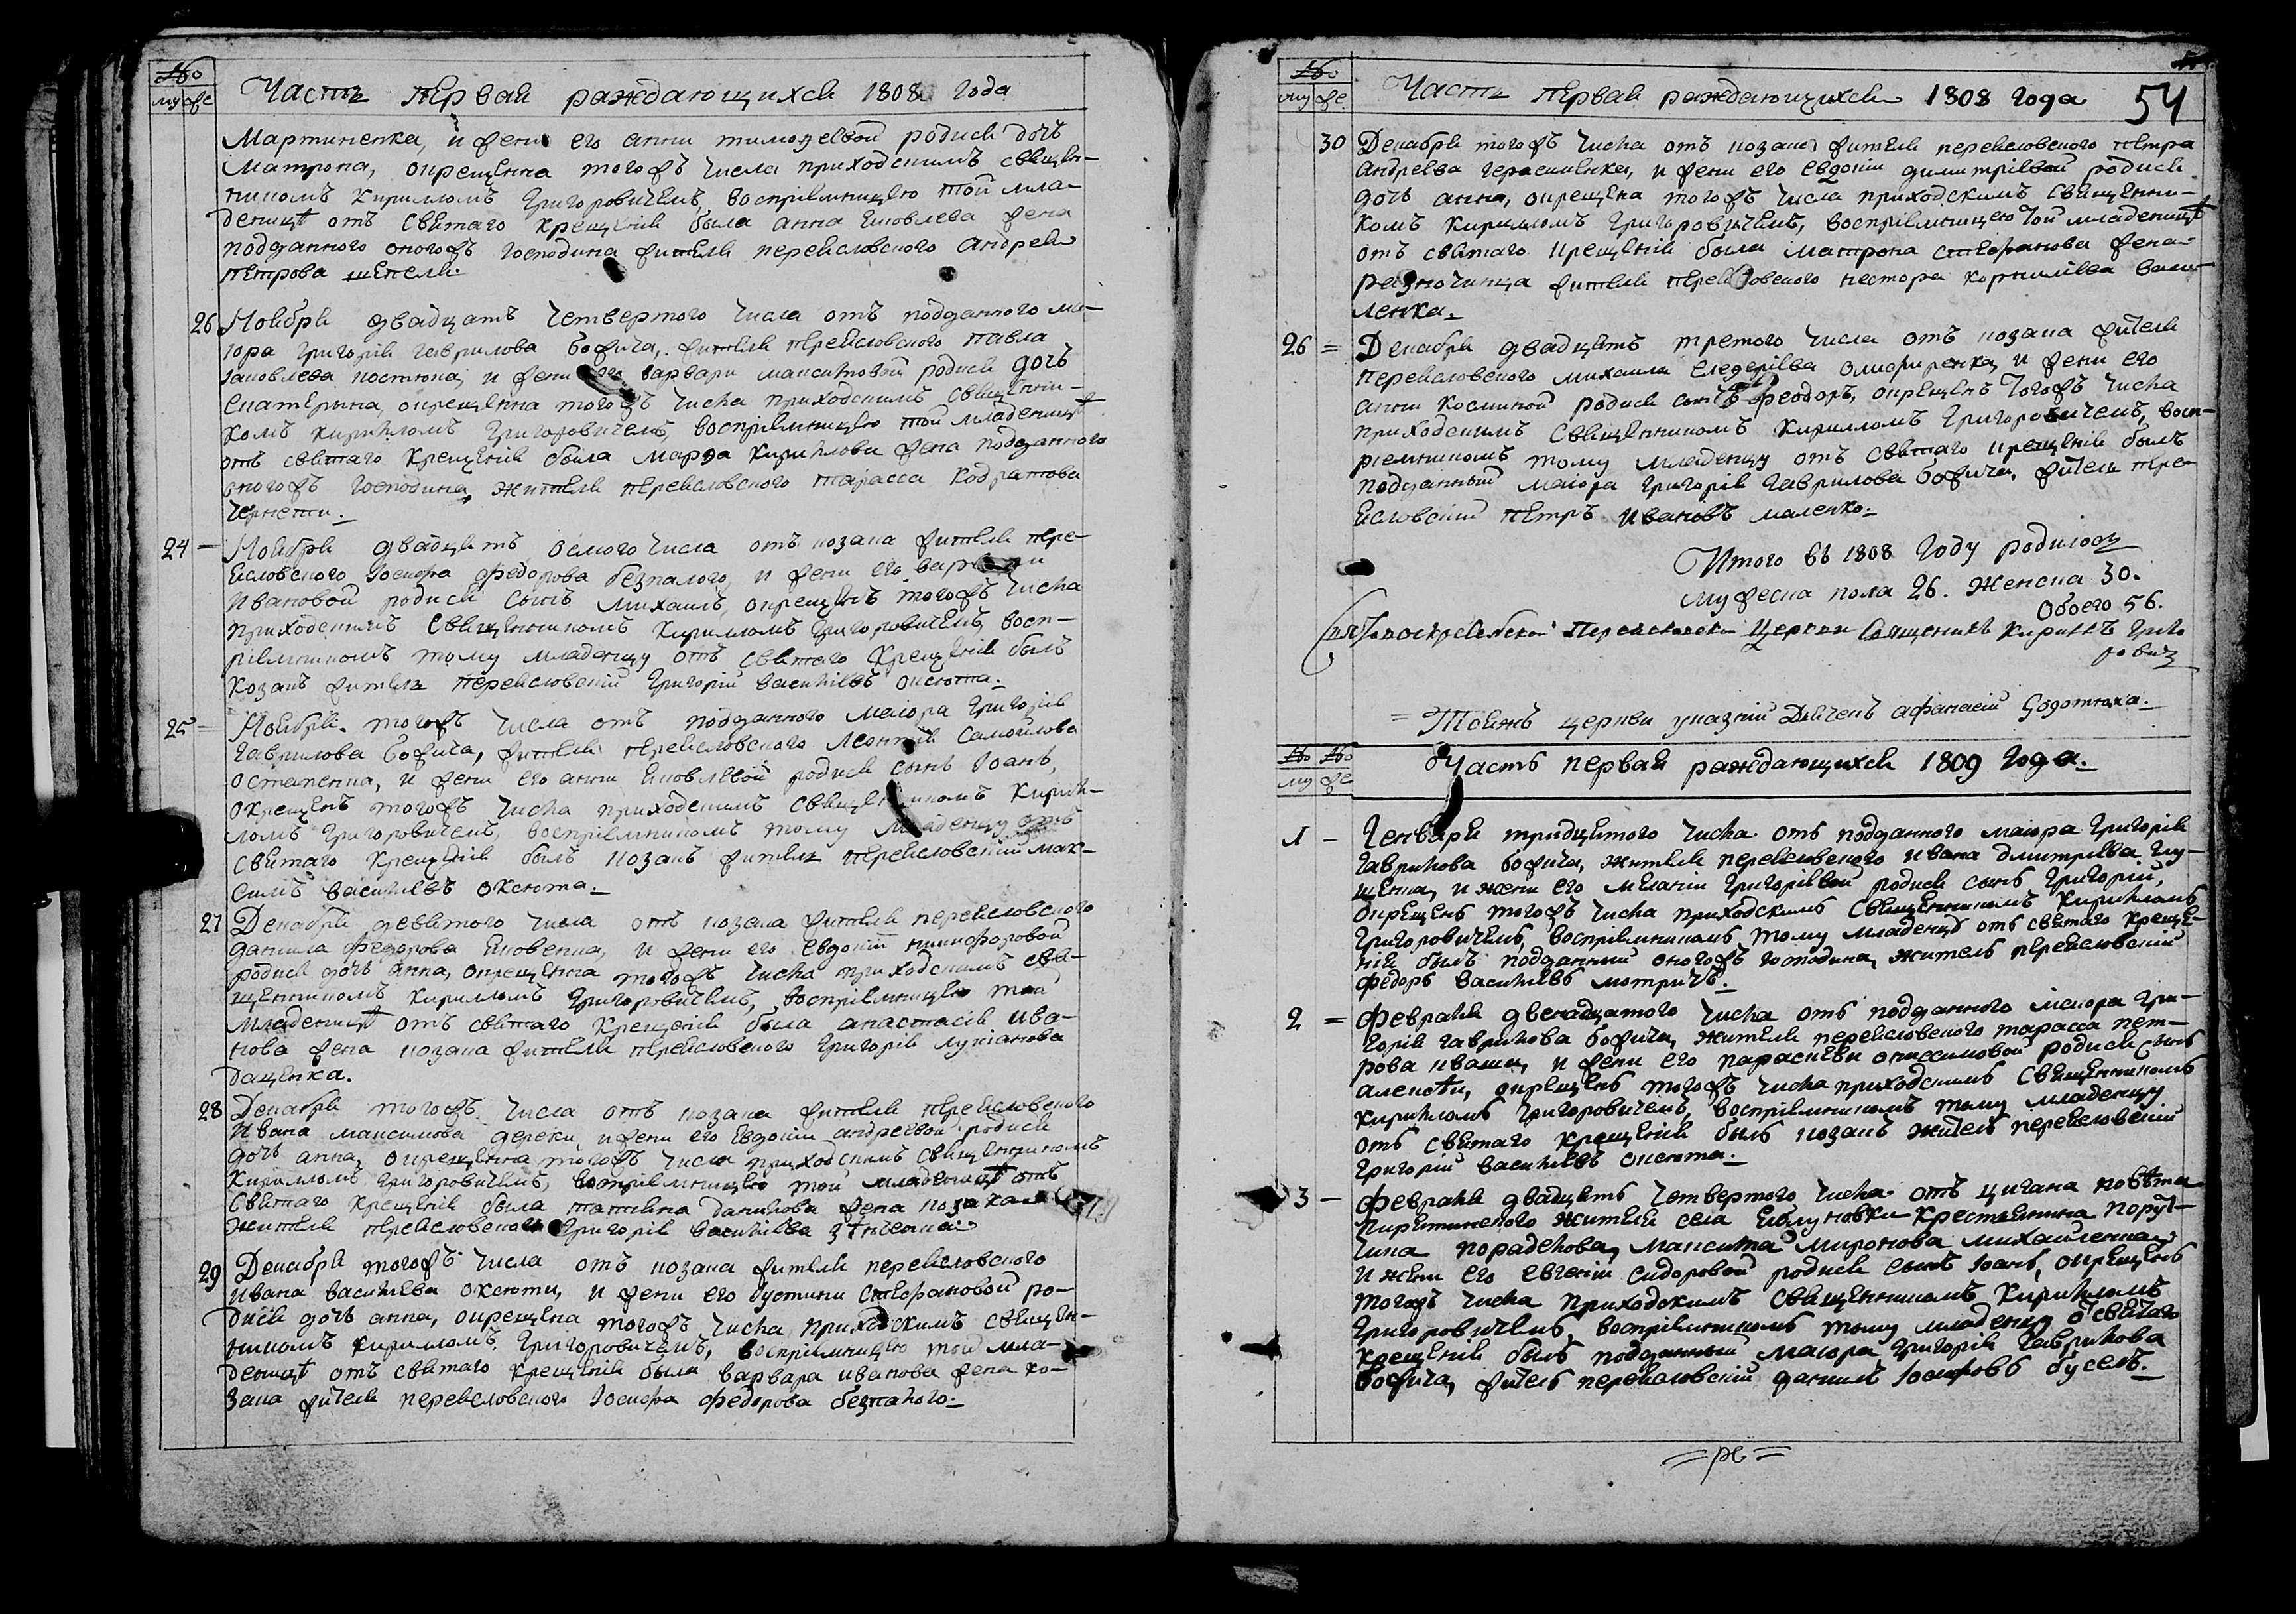 №
му фе
Часть первая раждающихся 1808 года
Мартиненка, и жени его анни тимофеевой родися дочъ
Матрона, окрещенна тогожъ числа приходскимъ священ-
никомъ Кирилломъ Григоровичемъ, восприемницею той мла-
деницѣ отъ святаго крещенія была Анна Яковлева жена
подданного оногожъ господина жителя переясловского андрея
петрова
26 Ноября двадцатъ четвертого числа отъ подданного ма-
іора Григорія Гаврилова Божича, жителя переясловского павла
яковлева костюка, и жени его варвари максимовой родися дочъ
Екатерына, окрещенна тогожъ числа приходскимъ священни-
комъ Кирилломъ Григоровичемъ, восприемницею той младеницѣ
отъ святаго крещенія была Марфа Кирилова жена подданного
оногожъ господина, жителя переясловского тарасса Кодратова
чернети.
24 – Ноября двадцять осмого числа отъ козака жителя пере-
ясловского Іосифа федорова безпалого, и жени его варвари
Ивановой родися сынъ михаилъ, окрещенъ тогожъ числа
приходскимъ священникомъ Кирилломъ Григоровичемъ, восп-
ріемникомъ тому младенцу отъ святаго крещенія былъ
козакъ житель переясловскій Григорій васильевъ оксюта.
25 = Ноября тогожъ числа отъ подданного маіора Григорія
Гаврилова Божича, жителя переясловского Леонтія Самойлова
остапенка, и жени его анни яковлевой родися сынъ Іоанъ,
окрещенъ тогожъ числа приходскимъ священникомъ Кирил-
ломъ Григоровичемъ, восприемникомъ тому младенцу отъ
святаго крещенія былъ козакъ житель переясловскій мак-
симъ васильевъ оксюта.
27 Декабря девятого числа отъ козака жителя переясловского
данила федорова яковенка, и жени его Евдокіи никифоровой
родися дочъ анна, окрещенна тогожъ числа приходскимъ свя-
щенникомъ Кирилломъ Григоровичемъ, восприемницею той
младеницѣ отъ святаго крещенія была анастасія ива-
нова жена козака жителя переясловского Григорія лукіанова
дащенка.
28 Декабря тогожъ числа отъ козака жителя переясловского
Ивана максимова дереки, и жени его Евдокіи андреевой родися
дочъ анна, окрещенна тогожъ числа приходскимъ священникомъ
Кирилломъ Григоровичемъ, восприемницею той младеницѣ отъ
святаго крещенія была татіяна данилова жена козака
жителя переясловского Григорія васильева
29 Декабря тогожъ числа отъ козака жителя переясловского
Ивана васильева оксюти, и жени его Іустини стефановой ро-
дися дочъ анна, окрещена тогожъ числа приходскимъ священ-
никомъ Кирилломъ Григоровичемъ, восприемницею той мла-
деницѣ отъ святаго крещенія была варвара иванова жена ко-
зака жителя переясловского Іосифа федорова безпалого.
№
му фе
Часть первая раждающихся 1808 года 54
30 Декабря тогожъ числа отъ козака жителя переясловского петра
андреева герасименка, и жени его евдокіи димитріевой родися
дочъ анна, окрещена тогожъ числа приходскимъ священни-
комъ Кирилломъ Григоровичемъ, восприемницею той младеницѣ
отъ святаго крещенія была матрона стефанова жена
разночинца жителя переясловского нестора корнилиева васи-
ленка.
26 = Декабря двадцять третого числа отъ козака жителя
переясловского михаила омифиренка, и жени его
анни косминой родися синъ феодоръ, окрещенъ тогожъ числа
приходскимъ священникомъ Кирилломъ Григоровичемъ, восп-
риемникомъ тому младенцу отъ святаго крещенія былъ
подданный маіора Григорія Гаврилова Божича, житель пере-
ясловскій петръ ивановъ маленко.
Итого въ 1808 году родилось
мужеска пола 26. женска 30.
обоего 56.
Переясловской церкви Священникъ Кириллъ Григо
ровичъ
= Тоежъ церкви указній Дяченъ афанасій
№ №
му фе
Часть первая раждающихся 1809 года.
1 – Генваря тридцятого числа отъ подданного маіора Григорія
Гаврилова божича, жителя переясловского ивана дмитріева глу-
щенка, и жени его меланіи Григоріевой родися синъ Григорій,
окрещенъ тогожъ числа приходскимъ священникомъ Кириломъ
Григоровичемъ, восприемникомъ тому младенцу отъ святаго креще-
нія былъ подданный оногожъ господина, житель переясловскій
федоръ васильевъ мотричъ.
2 = февраля дванадцатого числа отъ подданного маіора Гри-
горія Гаврилова божича, жителя переясловского тарасса пет-
рова иваши, и жени его параскеви ониссимовой родися синъ
алексѣй, окрещенъ тогожъ числа приходскимъ священникомъ
Кириломъ Григоровичемъ, восприемникомъ тому младенцу
отъ святаго крещенія былъ козакъ житель переясловскій
Григорій васильевъ оксюта.
3 – февраля двадцять четвертого числа отъ цигана повѣта
пирятинского жителя села крестянина поруч-
чика максима миронова михайленка,
и жени его евгеніи сидоровой родися синъ Іоанъ, окрещенъ
тогожъ числа приходскимъ священникомъ Кириломъ
Григоровичемъ, восприемникомъ тому младенцу отъ святаго
крещенія былъ подданный маіора Григорія Гаврилова
божича, житель переясловскій даниилъ Іосифовъ буселъ.